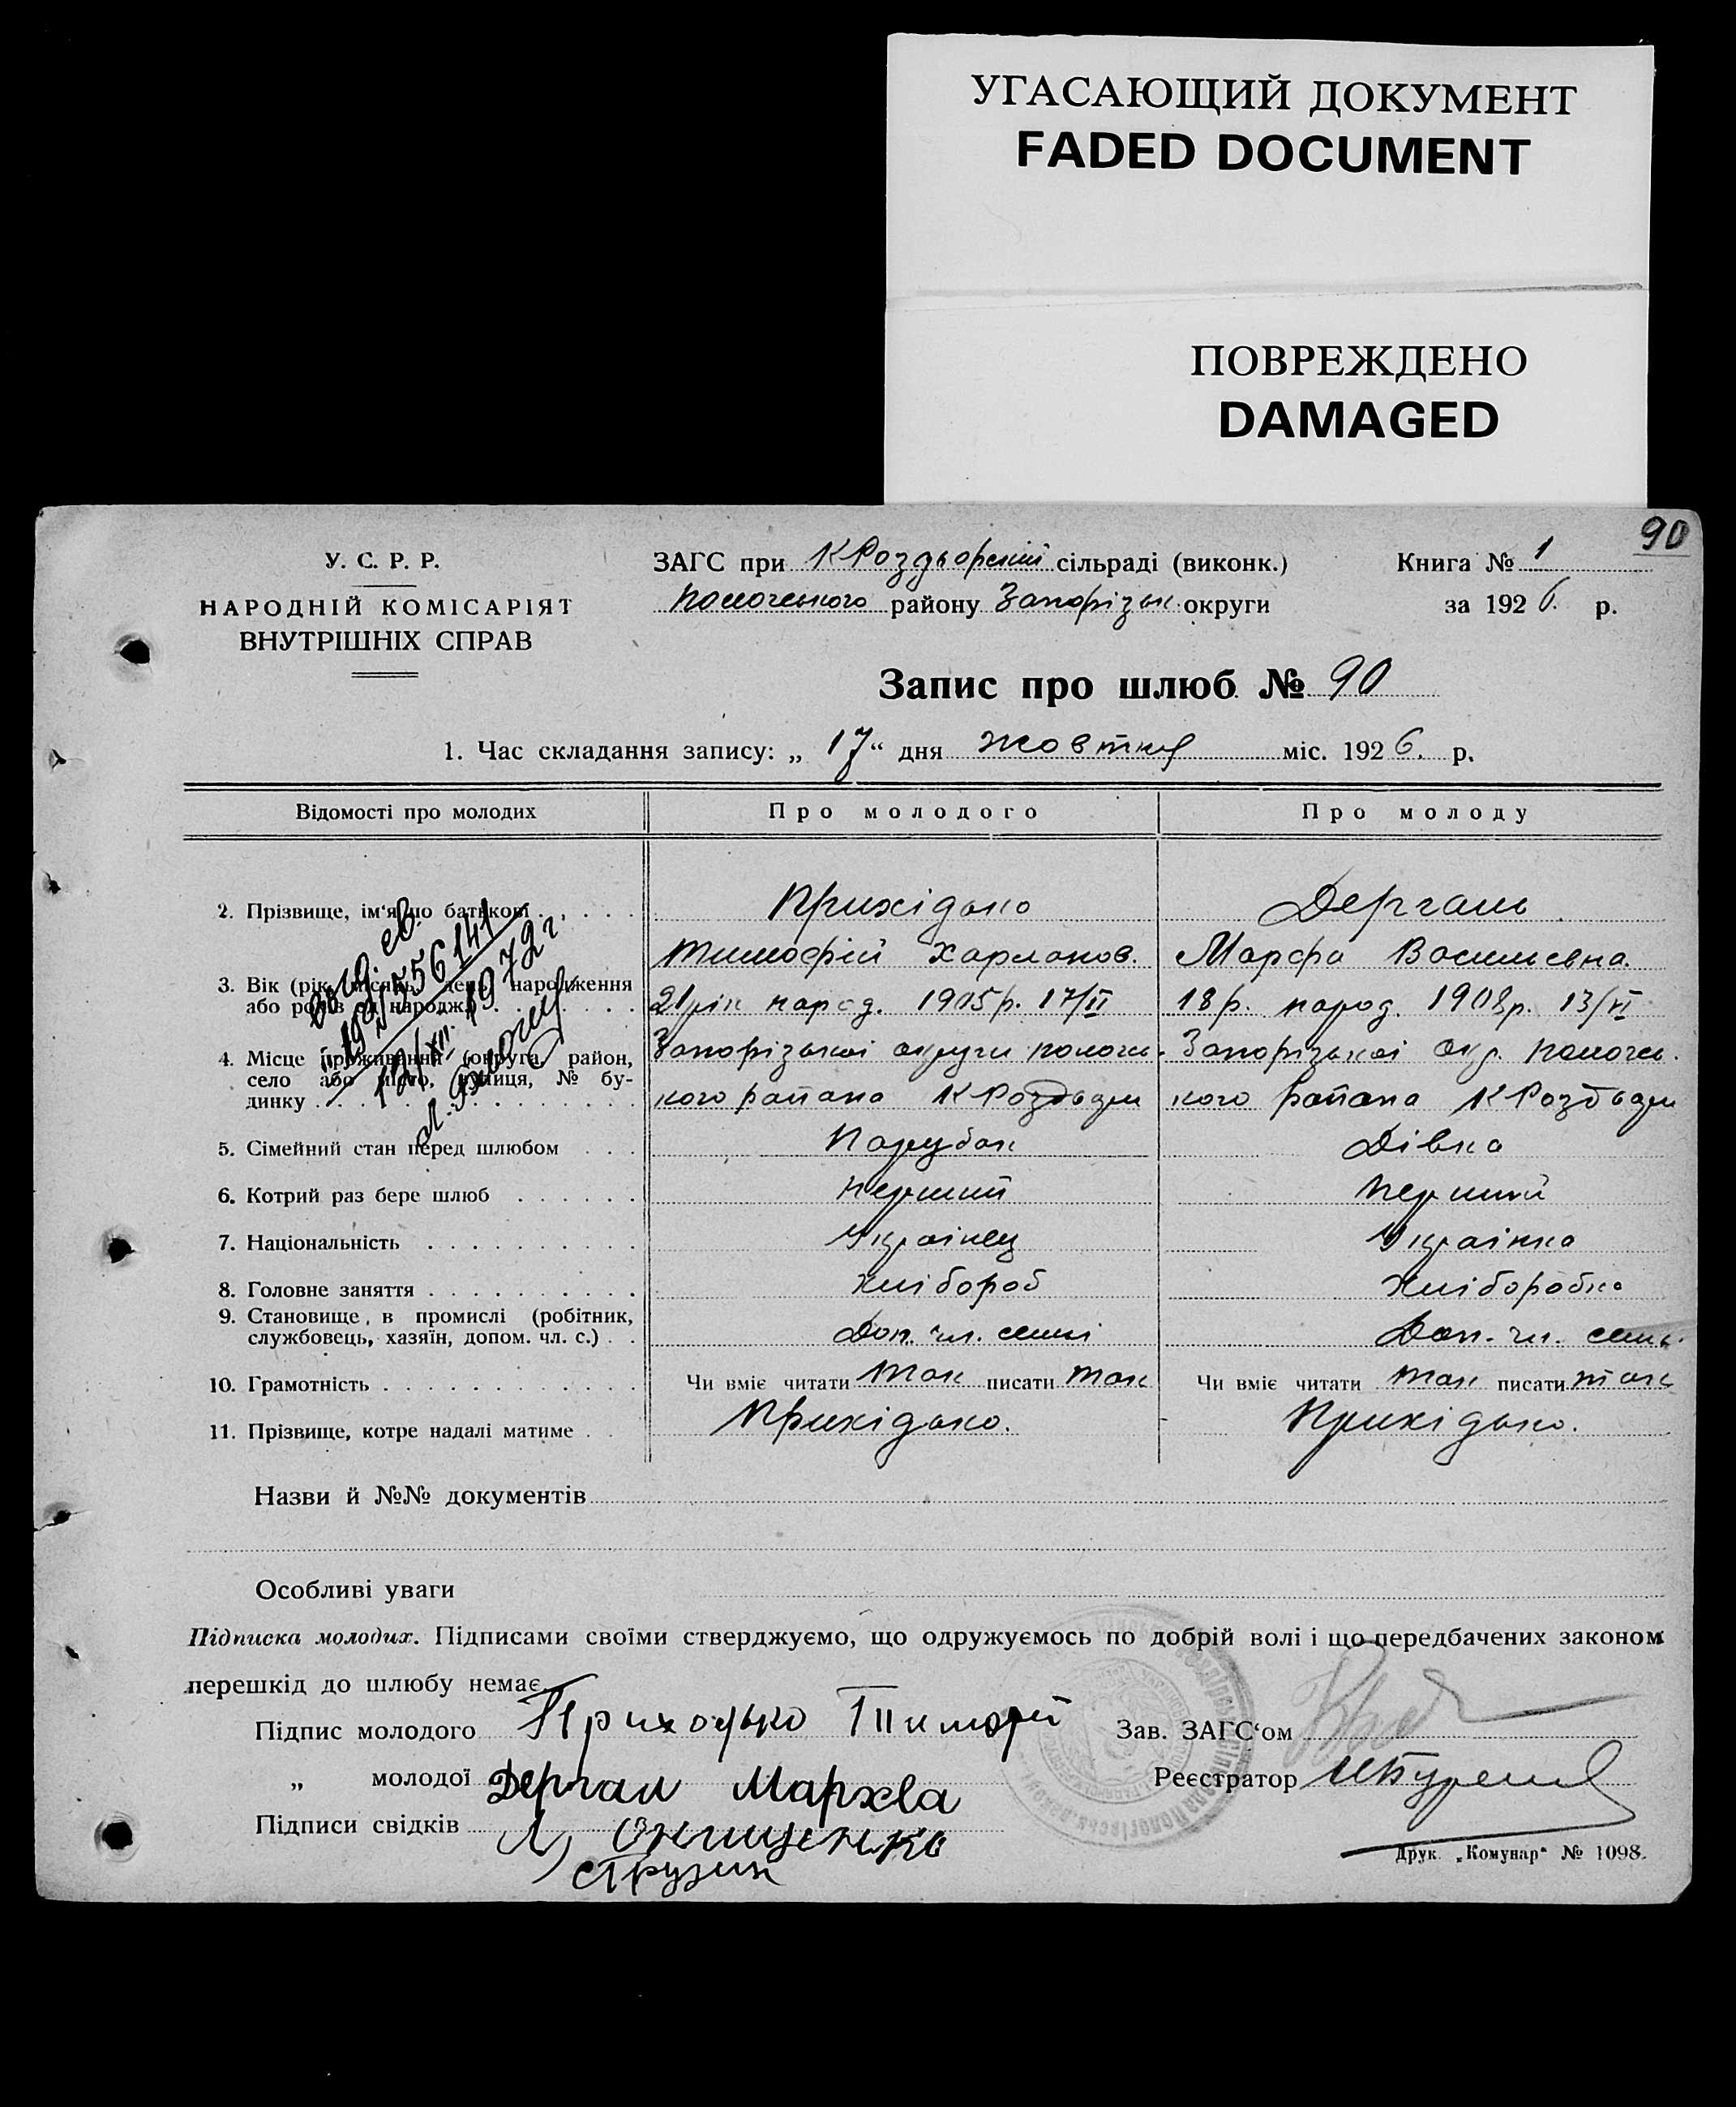 УГАСАЮЩИЙ ДОКУМЕНТ
FADED DOCUMENT
ПОВРЕЖДЕНО
DAMAGED
90
У. С. Р. Р.
НАРОДНІЙ КОМІСАРІЯТ
ВНУТРІШНІХ СПРАВ
ЗАГС при КРоздьорскій сільраді (виконк.)
Пологського району Запорізьк округи
Книга № 1
за 1926. р.
Запис про шлюб № 90
1. Час складання запису: „ 17 “ дня жовтня міс. 1926. р.
Відомості про молодих Про молодого Про молоду
2. Прізвище, ім‘я, по батькові Прихідько Дергаль
Тимофій Харланов. Марфа Васильевна
3. Вік (рік, місяць, день народження або років од народж.) 21 рік народ. 1905р. 17/II 18 р. народ. 1908р. 13/VI
4. Місце проживання (округа, район, село або місто, вулиця, № будинку) Запорізької округи пологсь- Запорізької окр. пологсь.
кого района КРоздьори кого района КРоздьори
5. Сімейний стан перед шлюбом Парубок Дівка
6. Котрий раз бере шлюб перший перший
7. Національність Українец Українка
8. Головне заняття Хлібороб Хліборобка
9. Становище в промислі (робітник, службовець, хазяїн, допом. чл. с.) Доп. чл. семьі Доп. чл. семь.
10. Грамотність Чи вміє читати так писати так Чи вміє читати так писати так
11. Прізвище, котре надалі матиме Прихідько. Прихідько.
1972 г
Назви й №№ документів
Особливі уваги
Підписка молодих. Підписами своїми стверджуємо, що одружуємось по добрій волі і що передбачених законом
перешкід до шлюбу немає.
Підпис молодого Приходько Тимофей
Зав. ЗАГС‘ом
„ молодої Дергал Мархва
Реєстратор
Підписи свідків Л Онищенко
Друк. „Комунар“ № 1098.